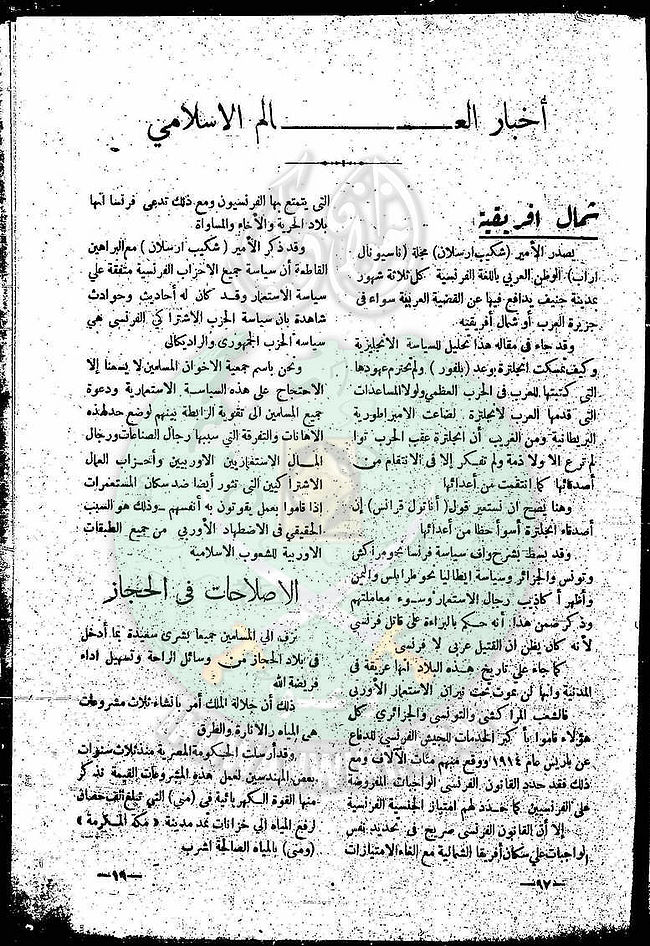 أخبار العـالم الاسلامي
شمال افريقية
يصدر الأمير (شكيب ارسلان) مجلة (ناسيونال
اراب) الوطن العربي باللغة الفرنسية كل ثلاثة شهور
بمدينة جنيف يدافع فيها عن القضية العربية سواء فى
جزيرة العرب أو شمال أفريقيه
وقد جاء فى مقاله هذا تحليل للسياسة الانجليزية
وكيف تمسكت انجلترة بوعد (بلفور) ولم تحترم عهودها
التى كتبتها للعرب فى الحرب العظمى ولولا المساعدات
التى قدمها العرب لانجلترة لضاعت الامبراطورية
البريطانية ومن الغريب أن انجلترة عقب الحرب توا
لم ترع الا ولا ذمة ولم تفكر إلا فى الانتقام من
أصدقائها كما انتقمت من أعدائها
وهنا يصح ان نستعير قول (أناتول فرانس) إن
أصدقاء انجلترة أسوأ حظا من أعدائها
وقد بسط بشرح واف سياسة فرنسا نحو مراكش
وتونس والجزائر وسياسة إيطاليا نحو طرابلس واليمن
وأظهر أكاذيب رجال الاستعمار وسوء معاملتهم
وذكر ضمن هذا أنه حكم بالبراءة على قاتل فرنسي
لأنه كان يظن ان القتيل عربى لا فرنسى
كما جاء على تاريخ هذه البلاد انها عريقة فى
المدنية وانها لن تموت تحت نيران الاستعمار الأوربى
فالشعب المراكشى والتونسى والجزائرى كل
هؤلاء قاموا بأكبر الخدمات للجيش الفرنسى للدفاع
عن باريس عام ١٩١٤ ووقع منهم مئات الآلاف ومع
ذلك فقد حدد القانون الفرنسى الواجبات المفروضة
على الفرنسيين كما حدد لهم امتياز الجنسية الفرنسية
إلا أن القانون الفرنسى صريح فى تحديد نفس
الواجبات على سكان أفريقا الشمالية مع الغاء الامتيازات
التى يتمتع بها الفرنسيون ومع ذلك تدعى فرنسا انها
بلاد الحرية والأخاء والمساواة
وقد ذكر الأمير (شكيب ارسلان) مع البراهين
القاطعة أن سياسة جميع الاحزاب الفرنسية متفقة على
سياسة الاستعمار وقد كان له أحاديث وحوادث
شاهدة بان سياسة الحزب الاشتراكى الفرنسى هى
سياسه الحزب الجمهورى والراديكالى
ونحن باسم جمعية الاخوان المسلمين لا يسعنا إلا
الاحتجاج على هذه السياسة الاستعمارية ودعوة
جميع المسلمين الى تقوية الرابطة بينهم لوضع حد لهذه
الاهانات والتفرقة التى سببها رجال الصناعات ورجال
المال الاستغلاليين الاوربيين وأحزاب العمال
الاشتراكيين التى تثور أيضا ضد سكان المستعمرات
إذا قاموا بعمل يقوتون به أنفسهم – وذلك هو السبب
الحقيقى فى الاضطهاد الأوربى من جميع الطبقات
الاوربية للشعوب الاسلامية
الاصلاحات فى الحجاز
نزف الى المسلمين جميعا بشرى سعيدة بما أدخل
فى بلاد الحجاز من وسائل الراحة وتسهيل اداء
فريضة الله
ذلك أن جلالة الملك أمر بانشاء ثلاث مشروعات
هى المياه والانارة والطرق
وقد أرسلت الحكومة المصرية منذ ثلاث سنوات
بعض المهندسين لعمل هذه المشروعات القيمة نذكر
منها القوة الكهربائية فى (منى) التى تبلغ ألف حصان
لرفع المياه الى خزانات تمد مدينة « مكة المكرمة »
(ومنى) بالمياه الصالحة للشرب
— ٩٧ —
— ١٩ —